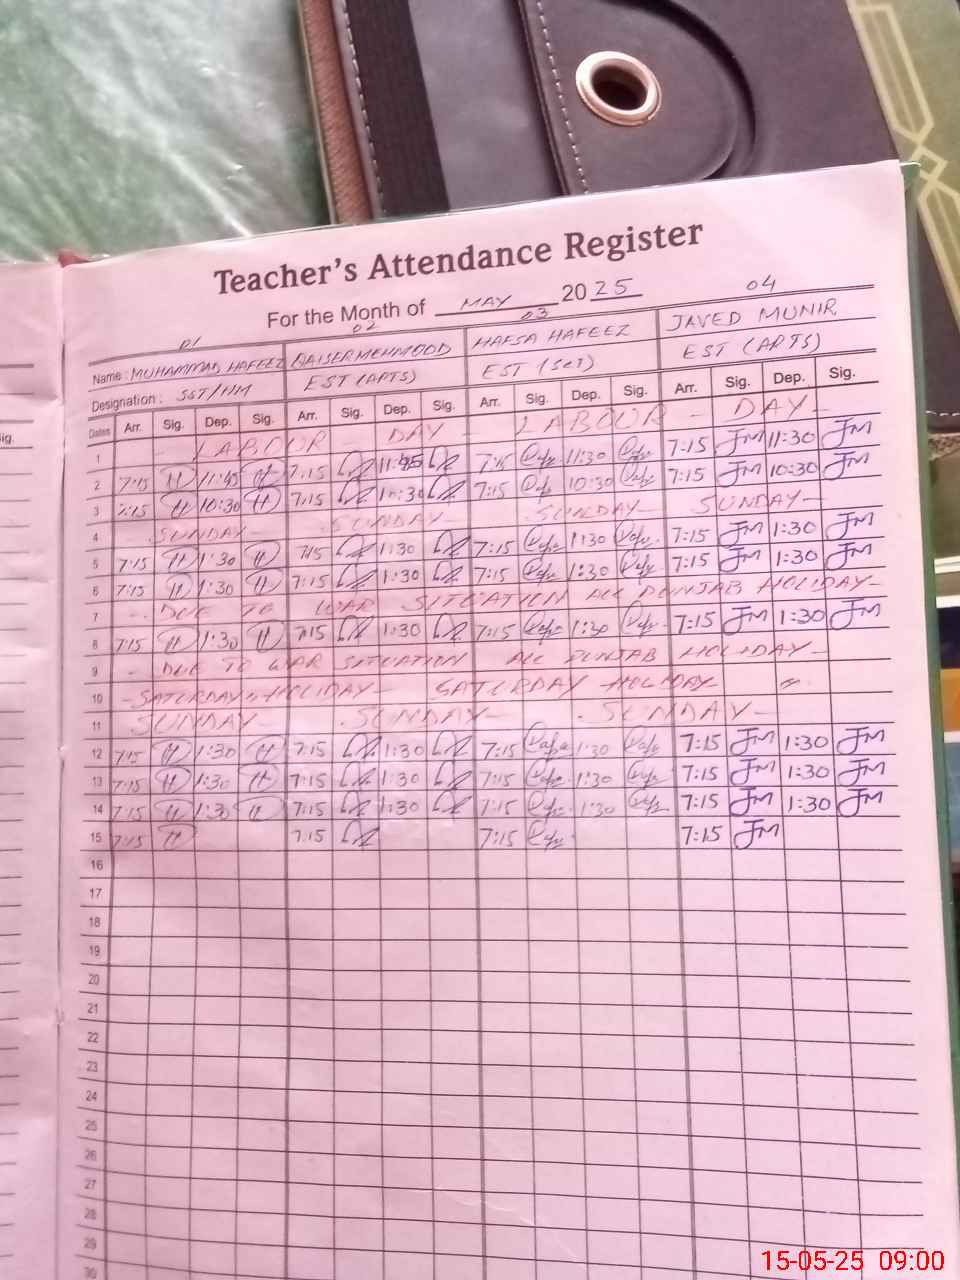 Teacher's Attendance Register
For the Month of MAY 2025
01 02 03 04
Name: MUHAMMAD HAFEEZ QAISER MEHMOOD HAFSA HAFEEZ JAVED MUNIR
Designation: SST/HM EST (APTS) EST (Sci) EST (APTS)
Dates Arr. Sig. Dep. Sig. Arr. Sig. Dep. Sig. Arr. Sig. Dep. Sig. Arr. Sig. Dep. Sig.
1 - LABOUR - DAY - LABOUR - DAY -
2 7:15 H 11:45 H 7:15 11:45 7:15 11:30 7:15 JM 11:30 JM
3 7:15 H 10:30 H 7:15 10:30 7:15 10:30 7:15 JM 10:30 JM
4 SUNDAY - SUNDAY - SUNDAY - SUNDAY -
5 7:15 H 1:30 H 7:15 1:30 7:15 1:30 7:15 JM 1:30 JM
6 7:15 H 1:30 H 7:15 1:30 7:15 1:30 7:15 JM 1:30 JM
7 - DUE TO WAR SITUATION ALL PUNJAB HOLIDAY -
8 7:15 H 1:30 H 7:15 1:30 7:15 1:30 7:15 JM 1:30 JM
9 - DUE TO WAR SITUATION ALL PUNJAB HOLIDAY -
10 - SATURDAY HOLIDAY - SATURDAY HOLIDAY -
11 SUNDAY - SUNDAY - SUNDAY -
12 7:15 H 1:30 H 7:15 1:30 7:15 1:30 7:15 JM 1:30 JM
13 7:15 H 1:30 H 7:15 1:30 7:15 1:30 7:15 JM 1:30 JM
14 7:15 H 1:30 H 7:15 1:30 7:15 1:30 7:15 JM 1:30 JM
15 7:15 H 7:15 7:15 7:15 JM
16
17
18
19
20
21
22
23
24
25
26
27
28
29
30
ig.
15-05-25 09:00